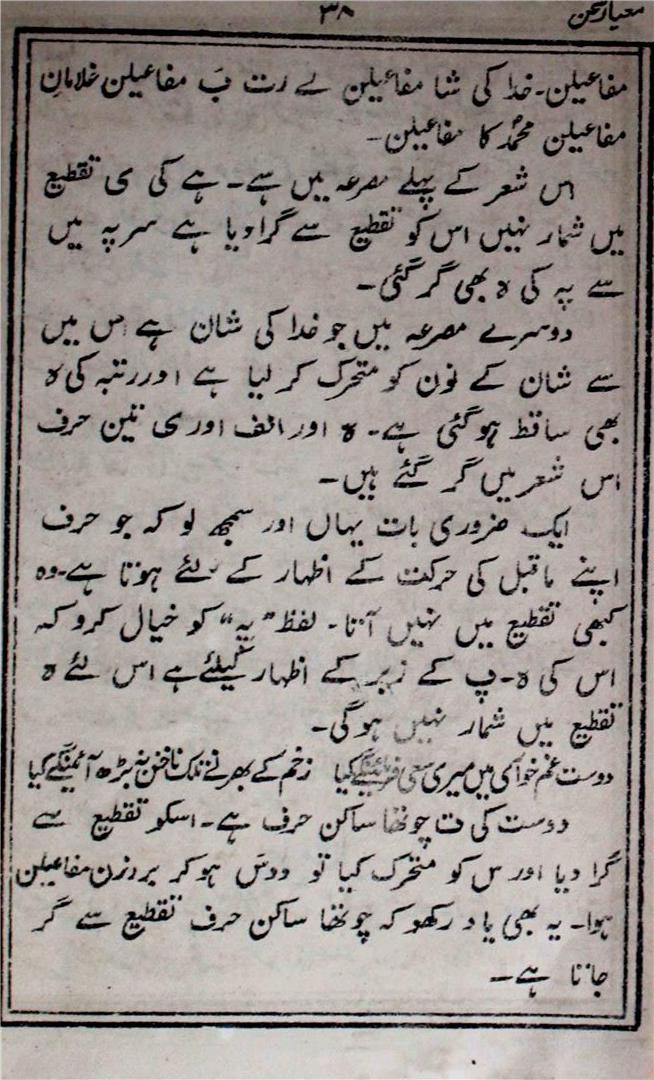 معیار سخن
۳۸
مفاعیلن۔ خدا کی شا مفاعیلن نے رت بَ مفاعیلن غلامانِ
مفاعیلن محمدؐ کا مفاعیلن۔
اس شعر کے پہلے مصرعہ میں ہے۔ ہے کی ی تقطیع
میں شمار نہیں اس کو تقطیع سے گرا دیا ہے سر پہ میں
سے پہ کی ہ بھی گر گئی۔
دوسرے مصرعہ میں جو خدا کی شان ہے اس میں
سے شان کے نون کو متحرک کر لیا ہے اور رتبہ کی ہ
بھی ساقط ہو گئی ہے۔ ہ اور الف اور ی تین حرف
اس شعر میں گر گئے ہیں۔
ایک ضروری بات یہاں اور سمجھ لو کہ جو حرف
اپنے ماقبل کی حرکت کے اظہار کے لئے ہوتا ہے۔ وہ
کبھی تقطیع میں نہیں آتا۔ لفظ "پہ" کو خیال کرو کہ
اس کی ہ۔ پ کے زبر کے اظہار کیلئے ہے اس لئے ہ
تقطیع میں شمار نہیں ہوگی۔
دوست غم خواری میں میری سعی فرمائینگے کیا زخم کے بھرنے تلک ناخن نہ بڑھ آئینگے کیا
دوست کی ت چوتھا ساکن حرف ہے۔ اسکو تقطیع سے
گرا دیا اور س کو متحرک کیا تو دوسَ ہو کر بروزن مفاعیلن
ہوا۔ یہ بھی یاد رکھو کہ چوتھا ساکن حرف تقطیع سے گر
جاتا ہے۔